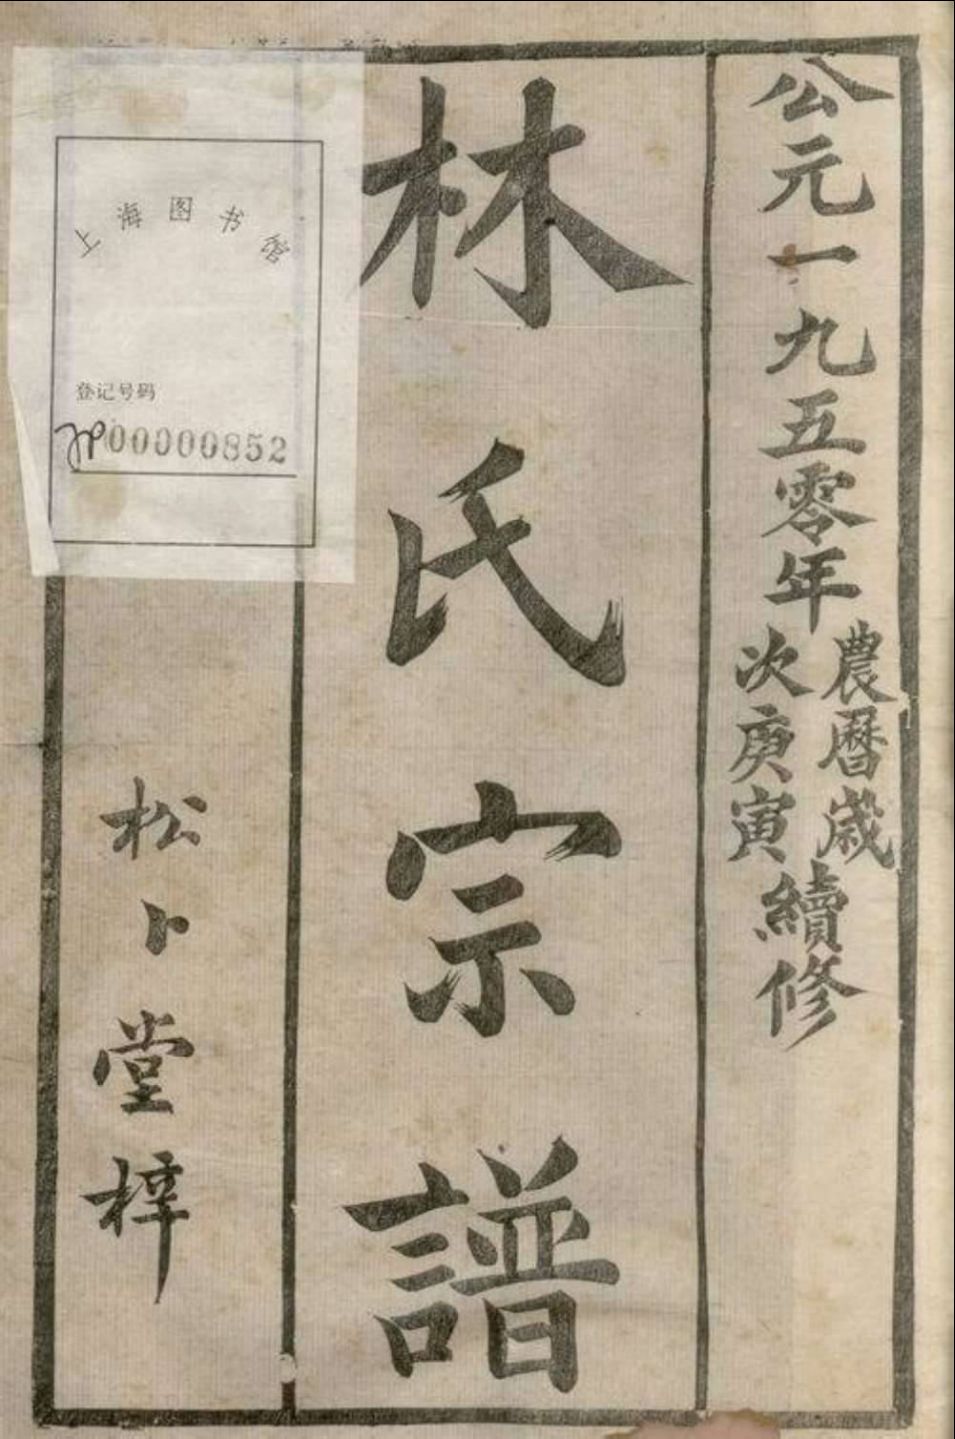 公元一九五零年農曆歲次庚寅續修
林氏宗譜
松卜堂梓
上海图书馆
登记号码
00000852